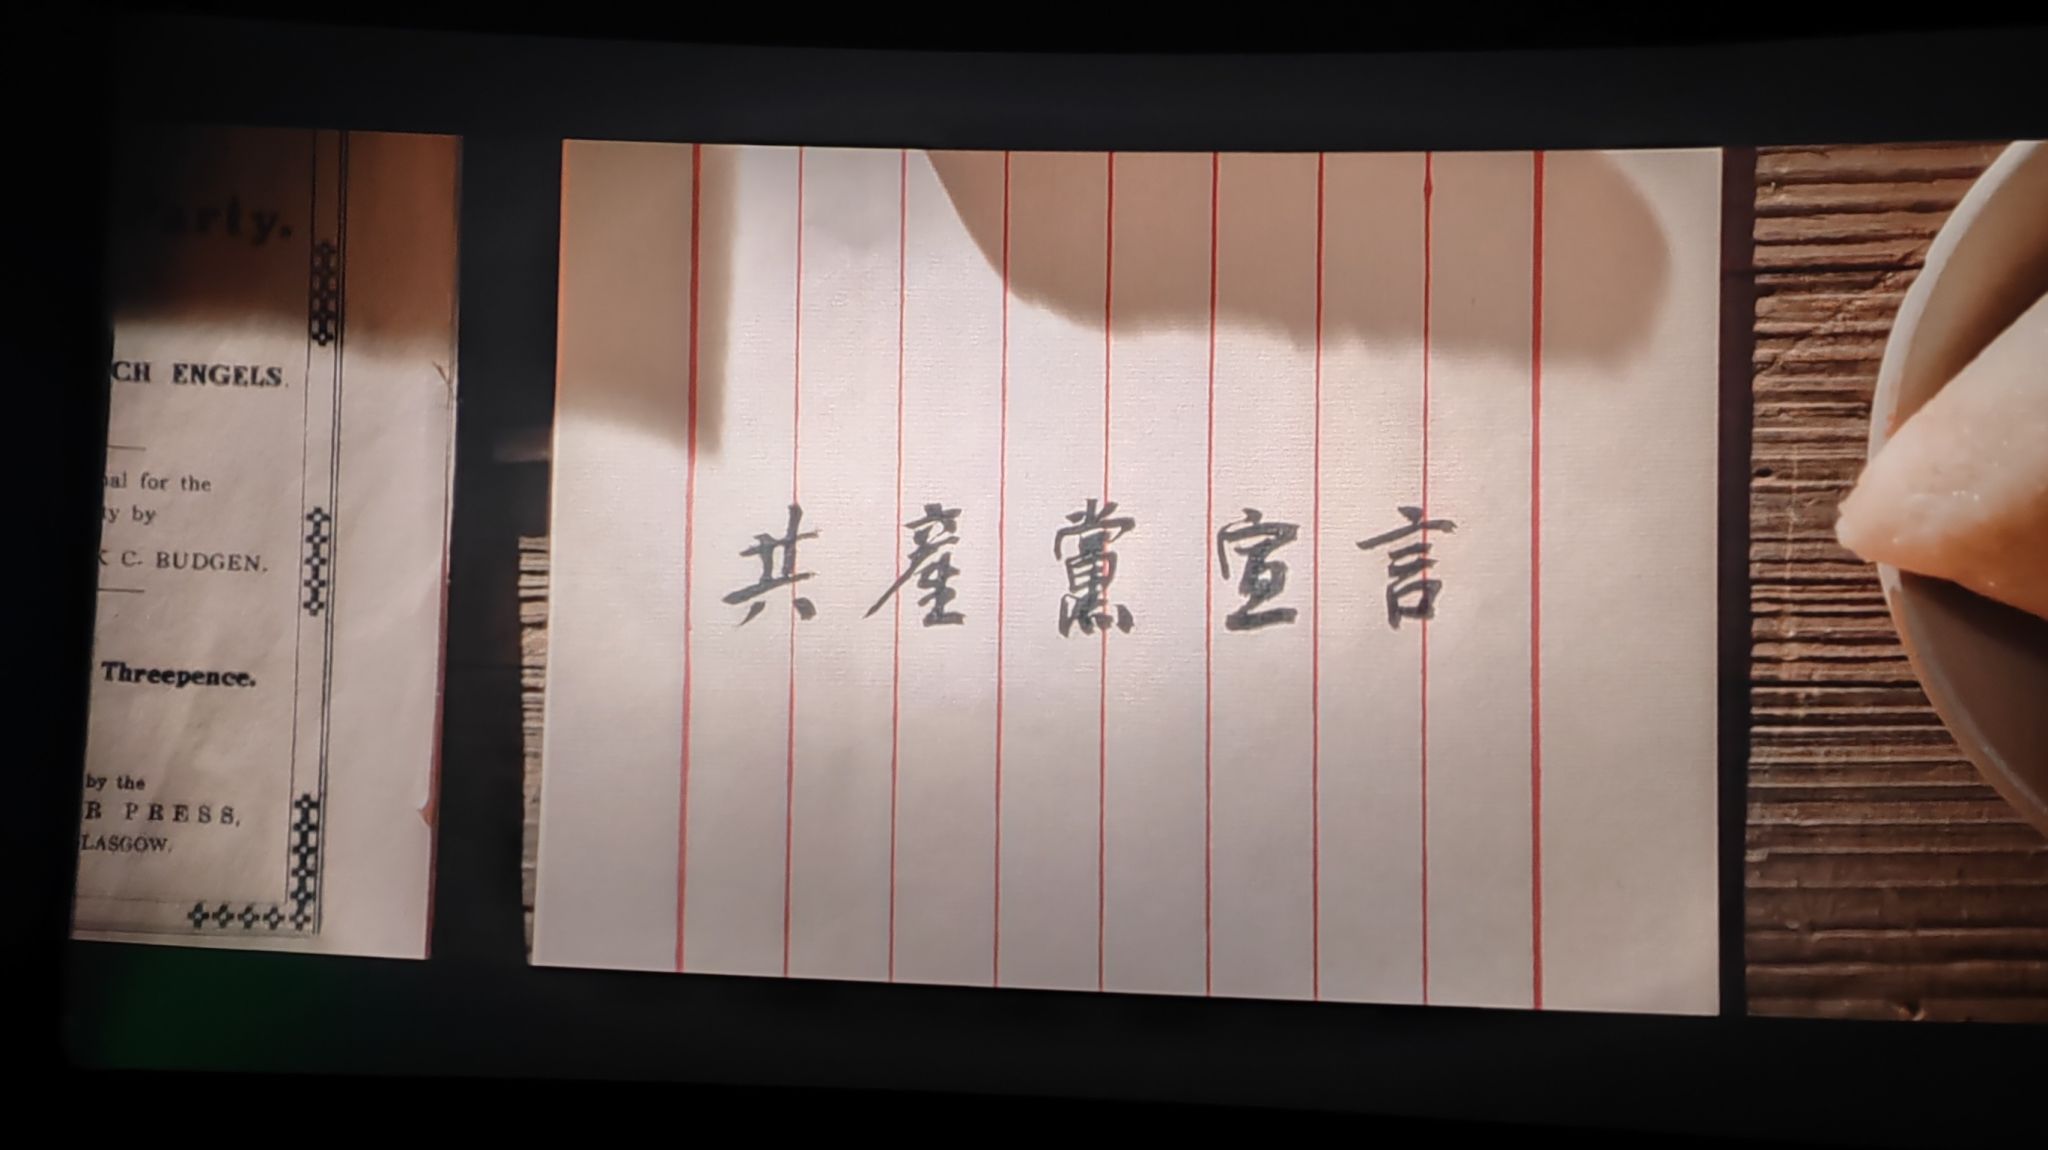 Party.
CH ENGELS.
for the
by
C. BUDGEN.
Threepence.
by the
R PRESS,
LASGOW.
共產黨宣言